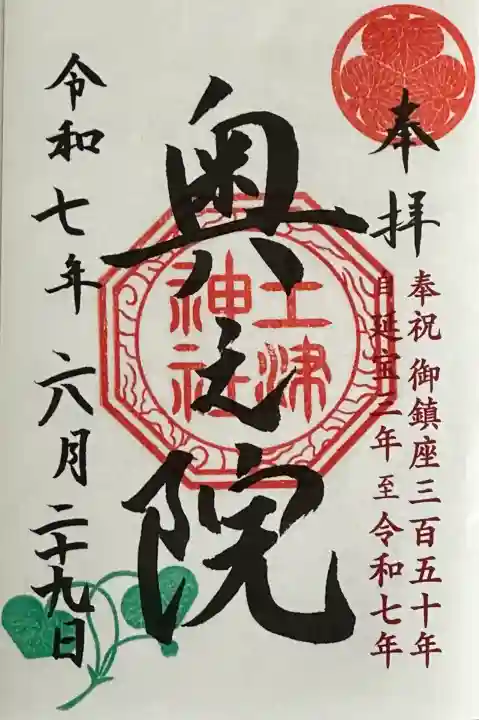 奉拝
奉祝 御鎮座三百五十年
自 延宝三年 至 令和七年
奥之院
土津
神社
令和七年 六月二十九日